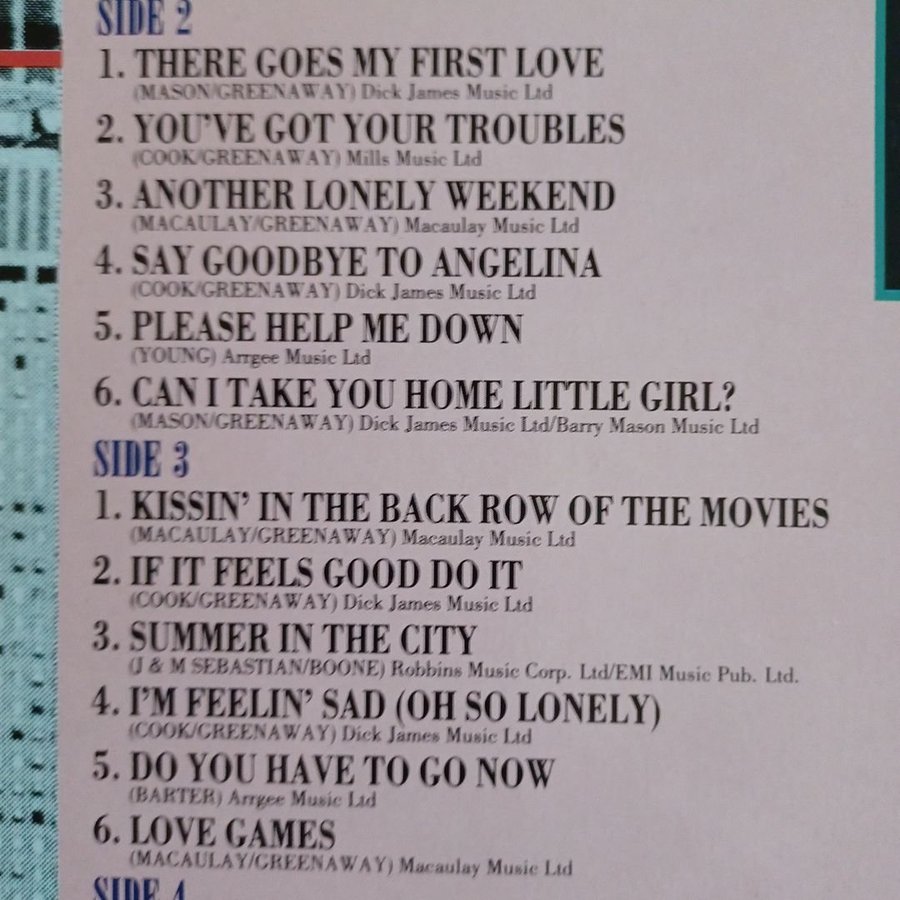 SIDE 2
1. THERE GOES MY FIRST LOVE
(MASON/GREENAWAY) Dick James Music Ltd
2. YOU'VE GOT YOUR TROUBLES
(COOK/GREENAWAY) Mills Music Ltd
3. ANOTHER LONELY WEEKEND
(MACAULAY/GREENAWAY) Macaulay Music Ltd
4. SAY GOODBYE TO ANGELINA
(COOK/GREENAWAY) Dick James Music Ltd
5. PLEASE HELP ME DOWN
(YOUNG) Arrgee Music Ltd
6. CAN I TAKE YOU HOME LITTLE GIRL?
(MASON/GREENAWAY) Dick James Music Ltd/Barry Mason Music Ltd
SIDE 3
1. KISSIN' IN THE BACK ROW OF THE MOVIES
(MACAULAY/GREENAWAY) Macaulay Music Ltd
2. IF IT FEELS GOOD DO IT
(COOK/GREENAWAY) Dick James Music Ltd
3. SUMMER IN THE CITY
(J & M SEBASTIAN/BOONE) Robbins Music Corp. Ltd/EMI Music Pub. Ltd.
4. I'M FEELIN' SAD (OH SO LONELY)
(COOK/GREENAWAY) Dick James Music Ltd
5. DO YOU HAVE TO GO NOW
(BARTER) Arrgee Music Ltd
6. LOVE GAMES
(MACAULAY/GREENAWAY) Macaulay Music Ltd
SIDE 4